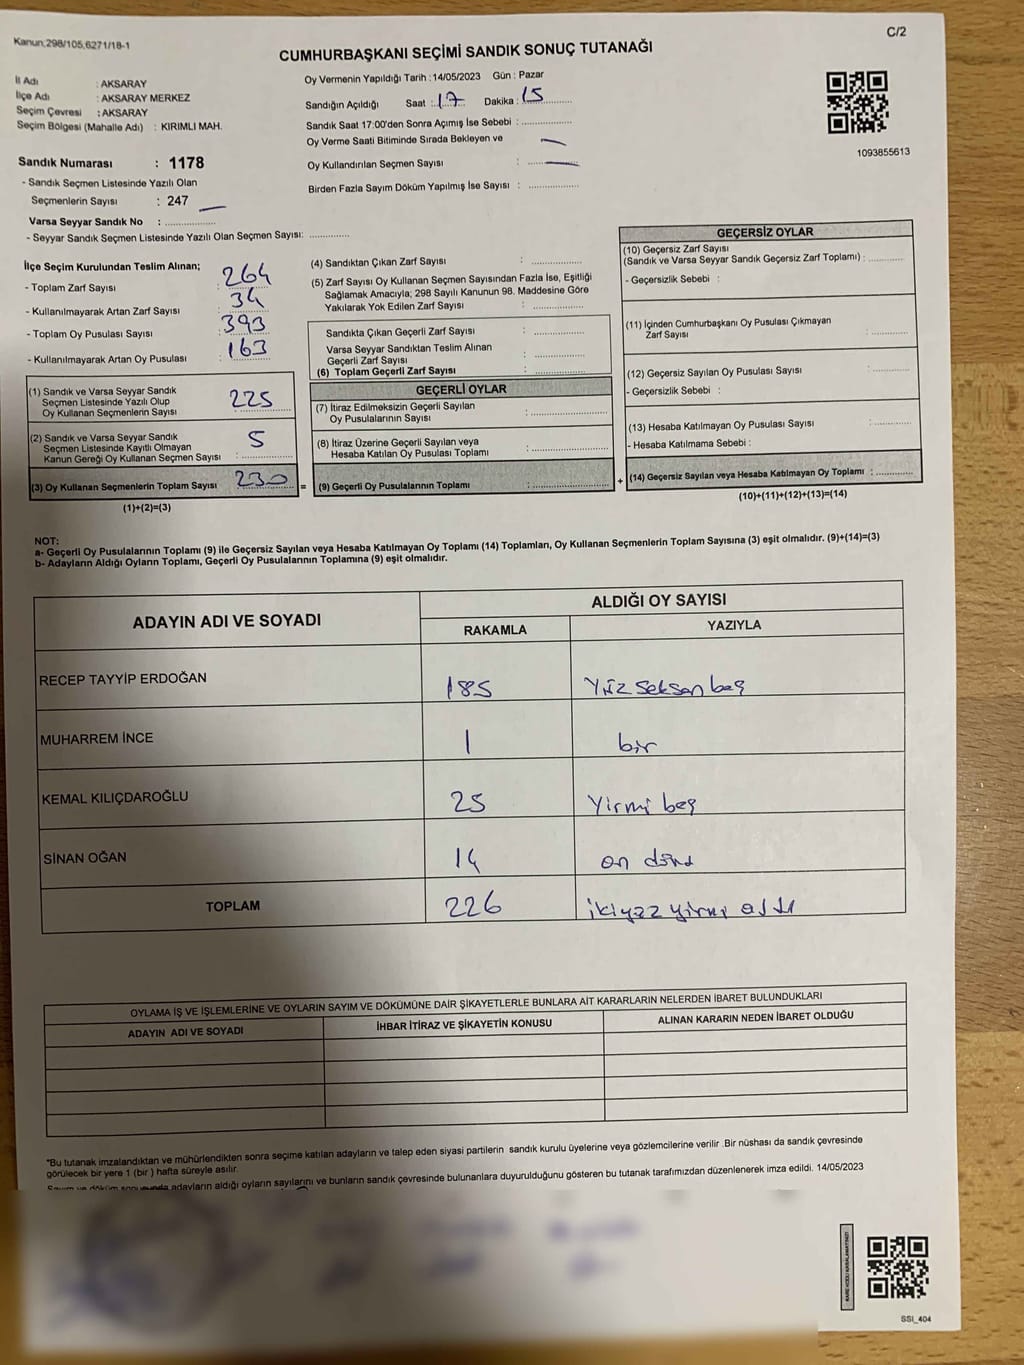 Kanun;298/105,6271/18-1
C/2
CUMHURBAŞKANI SEÇİMİ SANDIK SONUÇ TUTANAĞI
İl Adı : AKSARAY
İlçe Adı : AKSARAY MERKEZ
Seçim Çevresi : AKSARAY
Seçim Bölgesi (Mahalle Adı) : KIRIMLI MAH.
Oy Vermenin Yapıldığı Tarih : 14/05/2023 Gün : Pazar
Sandığın Açıldığı Saat : 17 Dakika : 15
Sandık Saat 17:00'den Sonra Açımış İse Sebebi :
Oy Verme Saati Bitiminde Sırada Bekleyen ve
Oy Kullandırılan Seçmen Sayısı :
Birden Fazla Sayım Döküm Yapılmış İse Sayısı :
1093855613
Sandık Numarası : 1178
- Sandık Seçmen Listesinde Yazılı Olan
Seçmenlerin Sayısı : 247
Varsa Seyyar Sandık No :
- Seyyar Sandık Seçmen Listesinde Yazılı Olan Seçmen Sayısı:
İlçe Seçim Kurulundan Teslim Alınan;
- Toplam Zarf Sayısı : 264
- Kullanılmayarak Artan Zarf Sayısı : 34
- Toplam Oy Pusulası Sayısı : 393
- Kullanılmayarak Artan Oy Pusulası : 163
(1) Sandık ve Varsa Seyyar Sandık
Seçmen Listesinde Yazılı Olup
Oy Kullanan Seçmenlerin Sayısı 225
(2) Sandık ve Varsa Seyyar Sandık
Seçmen Listesinde Kayıtlı Olmayan
Kanun Gereği Oy Kullanan Seçmen Sayısı : 5
(3) Oy Kullanan Seçmenlerin Toplam Sayısı 230
(1)+(2)=(3)
(4) Sandıktan Çıkan Zarf Sayısı :
(5) Zarf Sayısı Oy Kullanan Seçmen Sayısından Fazla İse, Eşitliği
Sağlamak Amacıyla; 298 Sayılı Kanunun 98. Maddesine Göre
Yakılarak Yok Edilen Zarf Sayısı :
Sandıkta Çıkan Geçerli Zarf Sayısı :
Varsa Seyyar Sandıktan Teslim Alınan
Geçerli Zarf Sayısı :
(6) Toplam Geçerli Zarf Sayısı :
GEÇERLİ OYLAR
(7) İtiraz Edilmeksizin Geçerli Sayılan
Oy Pusulalarının Sayısı :
(8) İtiraz Üzerine Geçerli Sayılan veya
Hesaba Katılan Oy Pusulası Toplamı :
= (9) Geçerli Oy Pusulalarının Toplamı :
GEÇERSİZ OYLAR
(10) Geçersiz Zarf Sayısı
(Sandık ve Varsa Seyyar Sandık Geçersiz Zarf Toplamı) :
- Geçersizlik Sebebi :
(11) İçinden Cumhurbaşkanı Oy Pusulası Çıkmayan
Zarf Sayısı :
(12) Geçersiz Sayılan Oy Pusulası Sayısı :
- Geçersizlik Sebebi :
(13) Hesaba Katılmayan Oy Pusulası Sayısı :
- Hesaba Katılmama Sebebi :
+ (14) Geçersiz Sayılan veya Hesaba Katılmayan Oy Toplamı :
(10)+(11)+(12)+(13)=(14)
NOT:
a- Geçerli Oy Pusulalarının Toplamı (9) ile Geçersiz Sayılan veya Hesaba Katılmayan Oy Toplamı (14) Toplamları, Oy Kullanan Seçmenlerin Toplam Sayısına (3) eşit olmalıdır. (9)+(14)=(3)
b- Adayların Aldığı Oyların Toplamı, Geçerli Oy Pusulalarının Toplamına (9) eşit olmalıdır.
ADAYIN ADI VE SOYADI ALDIĞI OY SAYISI
RAKAMLA YAZIYLA
RECEP TAYYİP ERDOĞAN 185 Yüz seksen beş
MUHARREM İNCE 1 bir
KEMAL KILIÇDAROĞLU 25 Yirmi beş
SİNAN OĞAN 14 on dört
TOPLAM 226 ikiyüz yirmi altı
OYLAMA İŞ VE İŞLEMLERİNE VE OYLARIN SAYIM VE DÖKÜMÜNE DAİR ŞİKAYETLERLE BUNLARA AİT KARARLARIN NELERDEN İBARET BULUNDUKLARI
ADAYIN ADI VE SOYADI İHBAR İTİRAZ VE ŞİKAYETİN KONUSU ALINAN KARARIN NEDEN İBARET OLDUĞU
"Bu tutanak imzalandıktan ve mühürlendikten sonra seçime katılan adayların ve talep eden siyasi partilerin sandık kurulu üyelerine veya gözlemcilerine verilir .Bir nüshası da sandık çevresinde
görülecek bir yere 1 (bir ) hafta süreyle asılır.
Sayım ve döküm sonucunda adayların aldığı oyların sayılarını ve bunların sandık çevresinde bulunanlara duyurulduğunu gösteren bu tutanak tarafımızdan düzenlenerek imza edildi. 14/05/2023
SSI_404